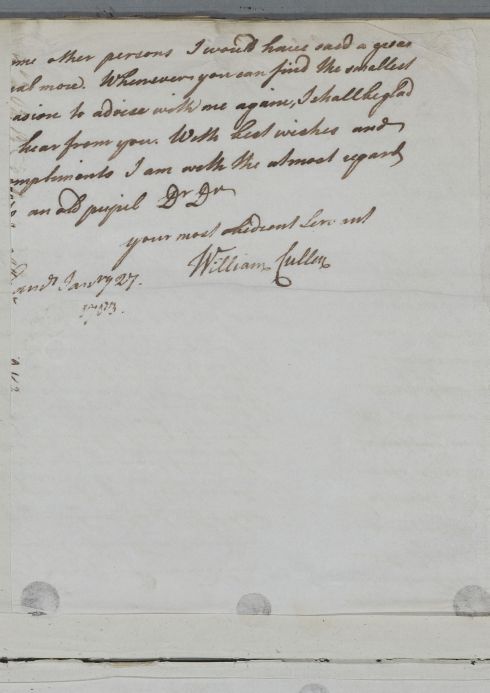 me other persons I would have said a great
al more. Whenever you can find the smallest
asion to advise with me again, I shall be glad
hear from you. With best wishes and
mpliments I am with the utmost regard
an old pupil Dr Dr
your most obedient Servant
William Cullen
Janry 27.